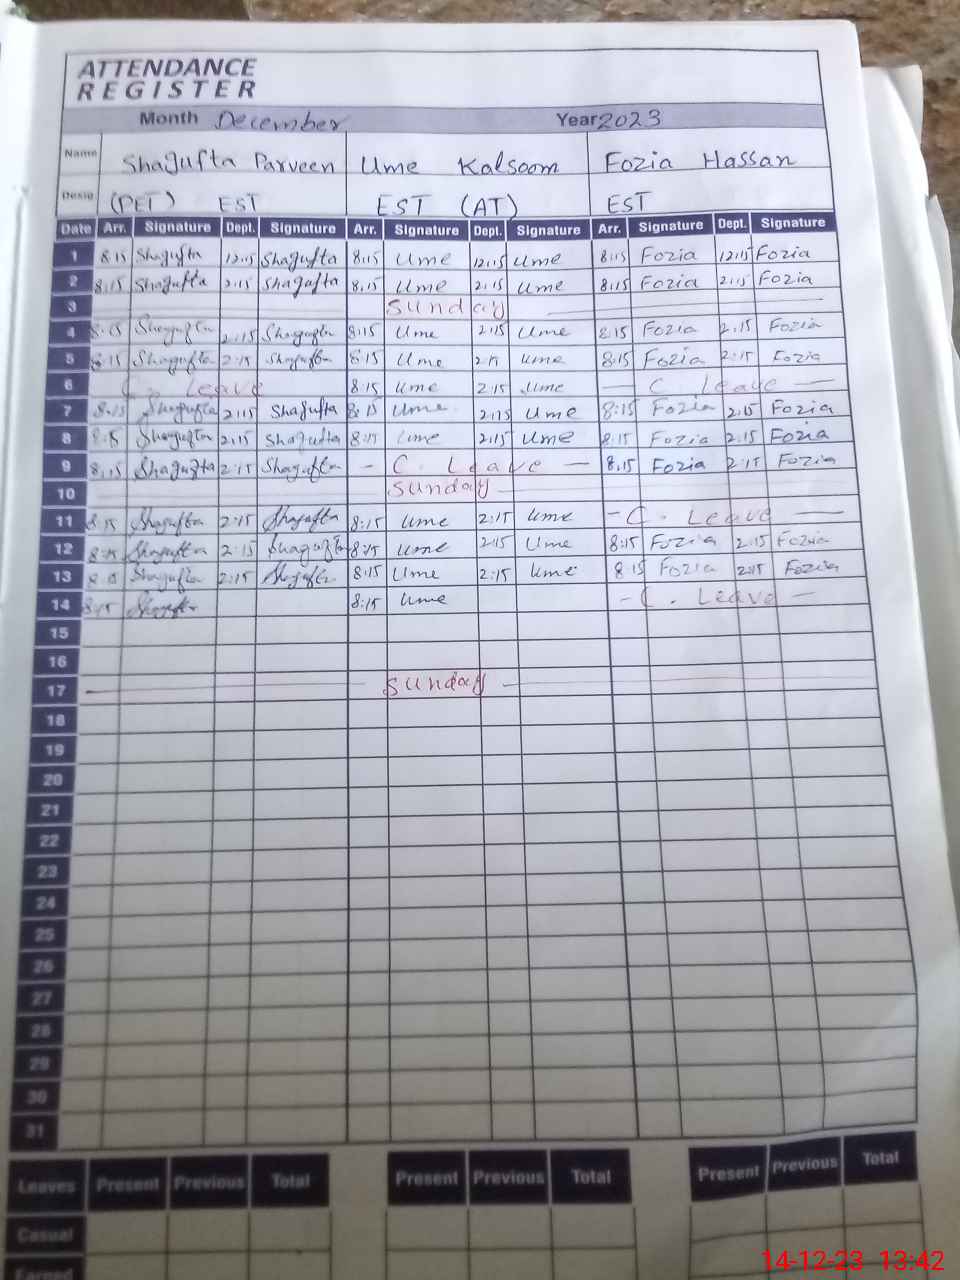 ATTENDANCE
REGISTER
Month December Year 2023
Name Shagufta Parveen Ume Kalsoom Fozia Hassan
Desig (PET) EST EST (AT) EST
Date Arr. Signature Dept. Signature Arr. Signature Dept. Signature Arr. Signature Dept. Signature
1 8:15 Shagufta 12:15 Shagufta 8:15 Ume 12:15 Ume 8:15 Fozia 12:15 Fozia
2 8:15 Shagufta 2:15 Shagufta 8:15 Ume 2:15 Ume 8:15 Fozia 2:15 Fozia
3 Sunday
4 8:15 Shagufta 2:15 Shagufta 8:15 Ume 2:15 Ume 8:15 Fozia 2:15 Fozia
5 8:15 Shagufta 2:15 Shagufta 8:15 Ume 2:15 Ume 8:15 Fozia 2:15 Fozia
6 C. Leave 8:15 Ume 2:15 Ume — C. Leave —
7 8:15 Shagufta 2:15 Shagufta 8:15 Ume 2:15 Ume 8:15 Fozia 2:15 Fozia
8 8:15 Shagufta 2:15 Shagufta 8:15 Ume 2:15 Ume 8:15 Fozia 2:15 Fozia
9 8:15 Shagufta 2:15 Shagufta - C. Leave — 8:15 Fozia 2:15 Fozia
10 Sunday
11 8:15 Shagufta 2:15 Shagufta 8:15 Ume 2:15 Ume - C. Leave —
12 8:15 Shagufta 2:15 Shagufta 8:15 Ume 2:15 Ume 8:15 Fozia 2:15 Fozia
13 8:15 Shagufta 2:15 Shagufta 8:15 Ume 2:15 Ume 8:15 Fozia 2:15 Fozia
14 8:15 Shagufta 8:15 Ume - C. Leave -
15
16
17 Sunday
18
19
20
21
22
23
24
25
26
27
28
29
30
31
Leaves Present Previous Total Present Previous Total Present Previous Total
Casual
Earned
14-12-23 13:42